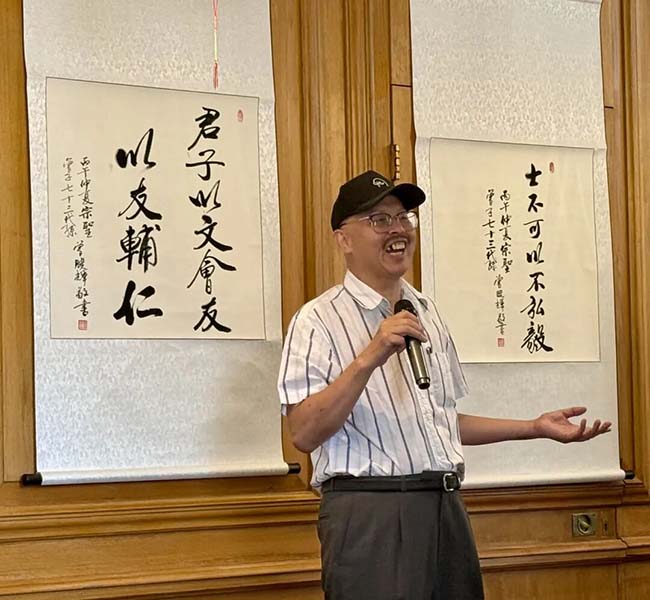 君子以文會友
以友輔仁
丙午仲夏宗聖
曾子七十三代孫 曾敬書
士不可以不弘毅
丙午仲夏宗聖
曾子七十三代孫 曾敬書